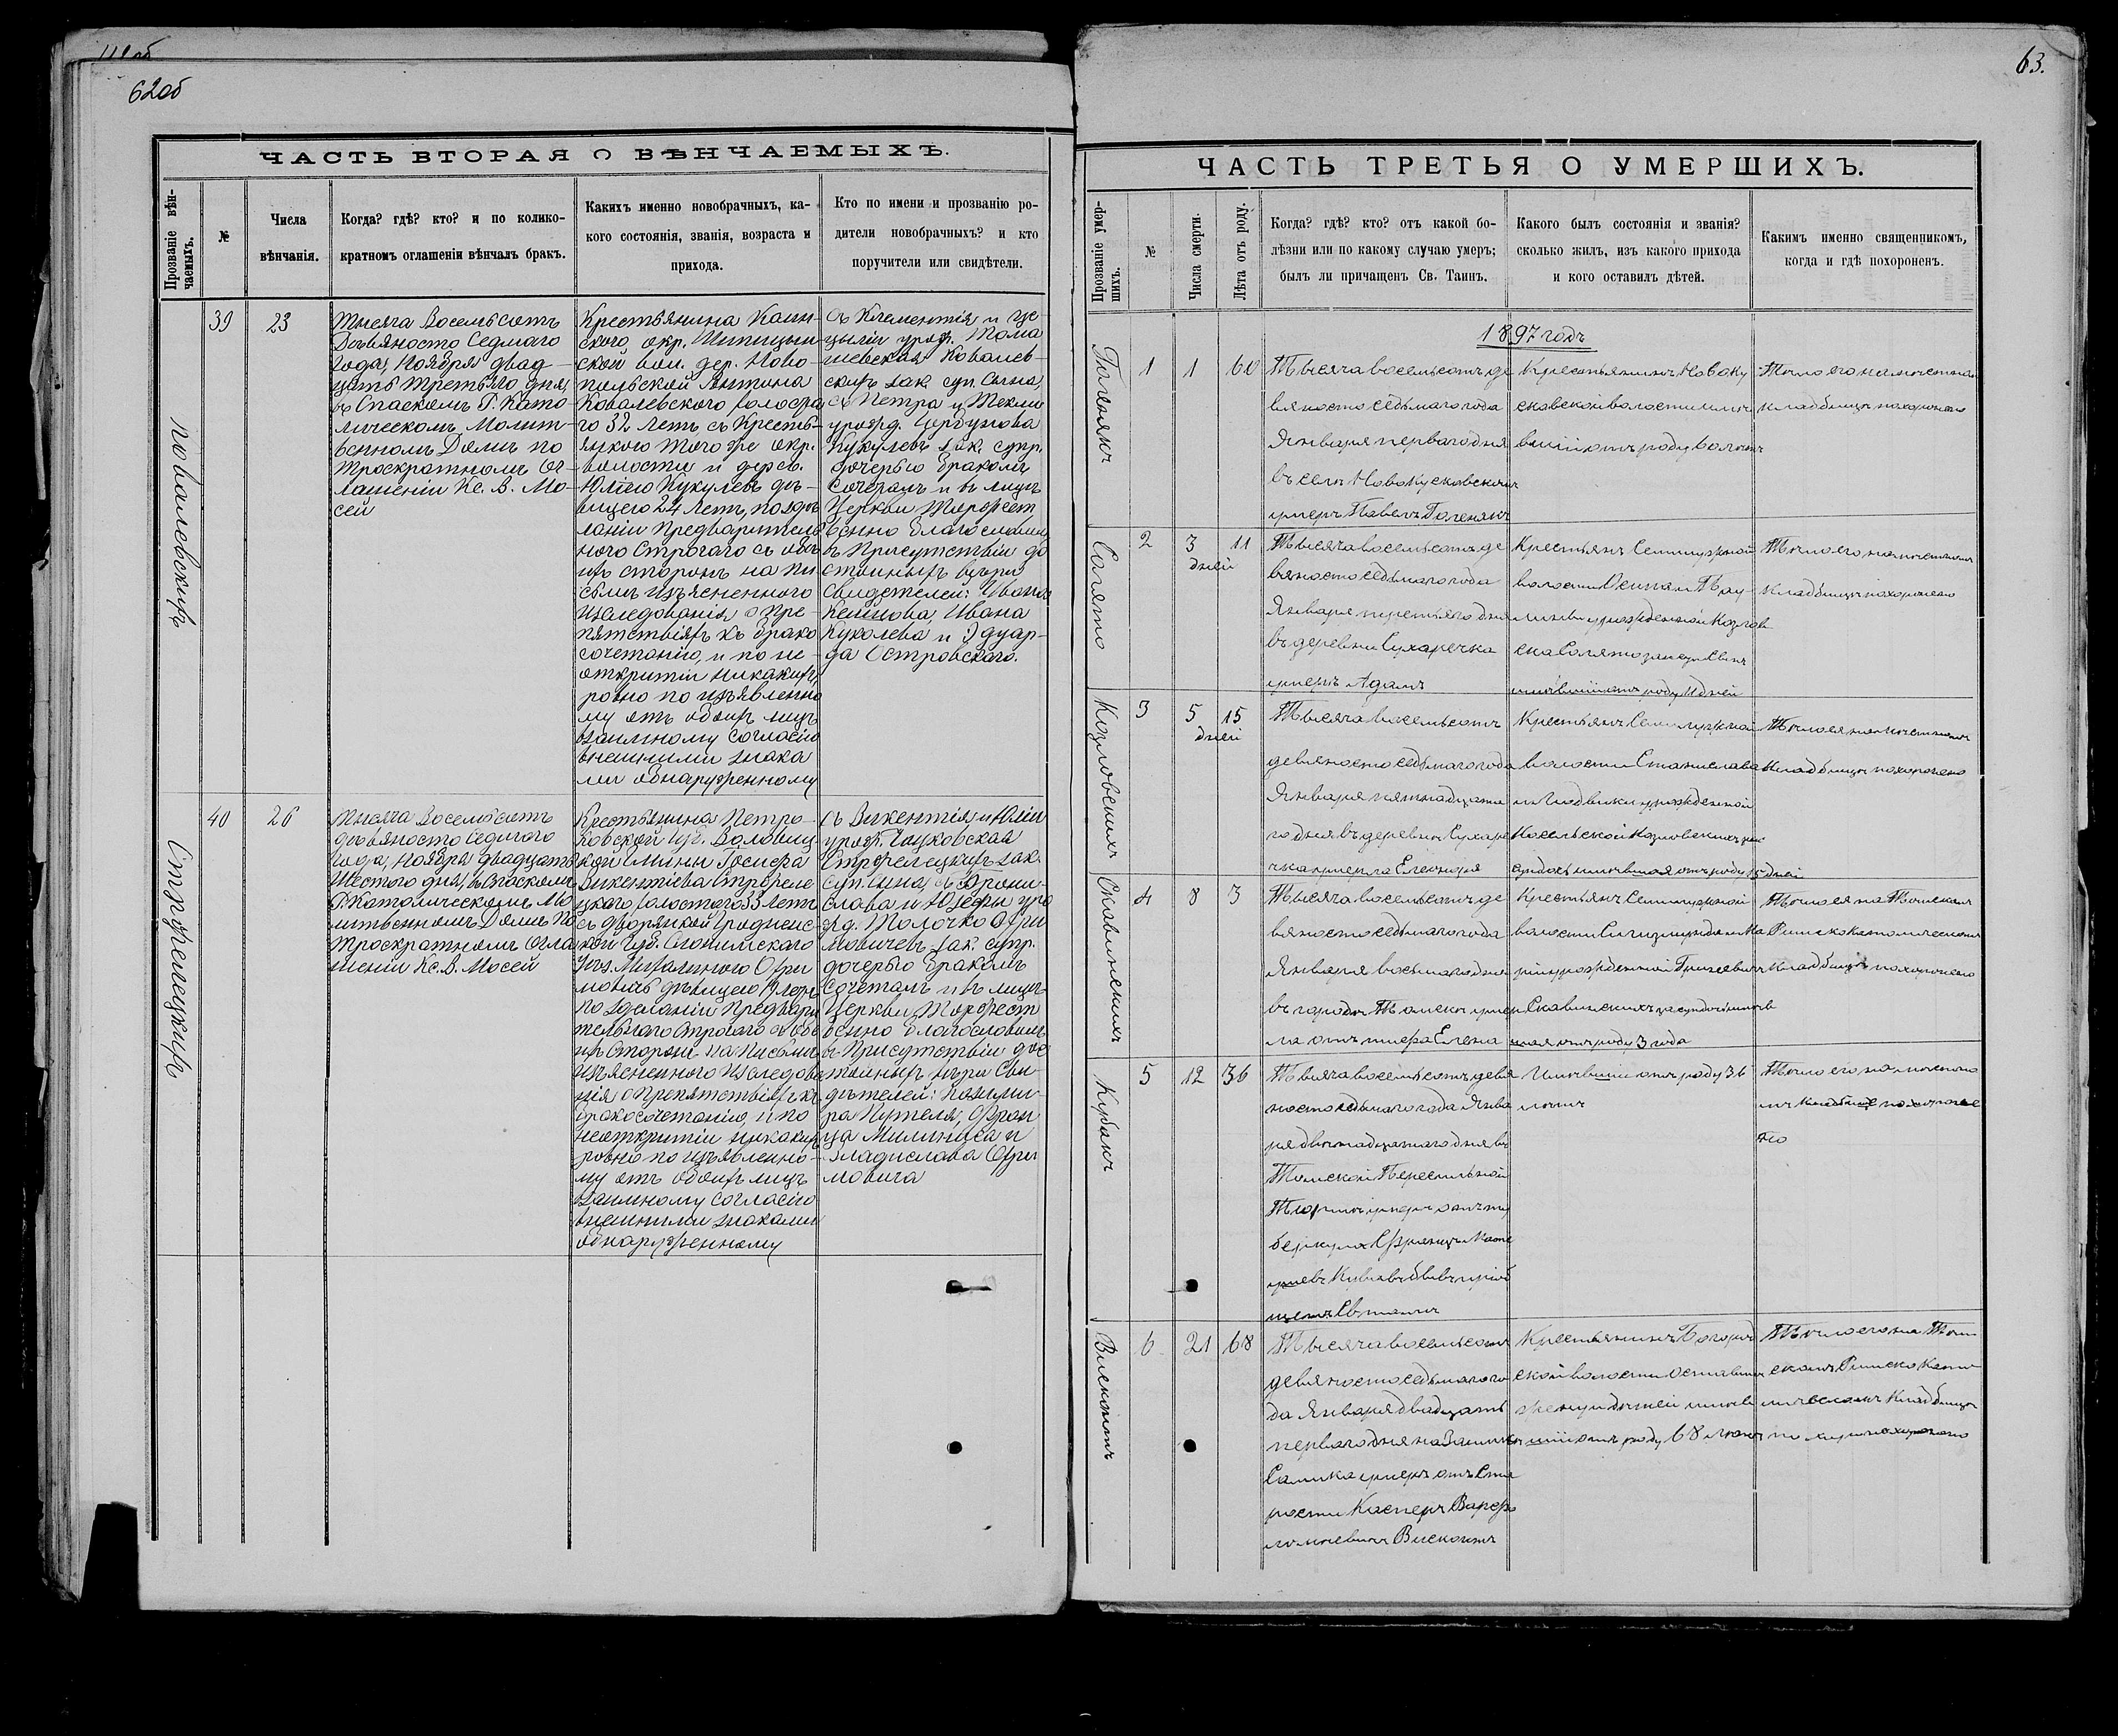 62об
ЧАСТЬ ВТОРАЯ О ВѢНЧАЕМЫХЪ.
Прозваніе вѣн-
чаемыхъ.
№
Числа
вѣнчанія.
Когда? гдѣ? кто? и по колико-
кратномъ оглашеніи вѣнчалъ бракъ.
Какихъ именно новобрачныхъ, ка-
кого состоянія, званія, возраста и
прихода.
Кто по имени и прозванію ро-
дители новобрачныхъ? и кто
поручители или свидѣтели.
Ковалевскихъ
39
23
Тысяча Восемьсотъ
Девяносто Седмаго
Года, Ноября двад-
цать третьяго дня,
въ Спаскомъ Р. Като-
лическомъ Молит-
венномъ Домѣ по
троскратномъ Ог-
лашеніи Кс. В. Мо-
сей
Крестьянина Каин-
скаго окр.
ской вол. дер. Ново-
польской Антина
Ковалевского холоста
го 32 летъ съ Кресть-
янкою того же окр.
волости и дерев.
Юліею Кукулевъ дѣ-
вицею 24 летъ, по здѣ
ланіи Предваритель
ного Строгаго съ обо
ихъ сторонъ на пи
сьмѣ изъясненного
Изследованія о Пре-
пятствіяхъ къ брако
сочетанію, и по не-
открытіи никакихъ,
ровно по изъявленно
му отъ обоихъ лицъ
взаимному согласію
внешними знака
ми обнаруженному
съ Климентія и Це
циліи урож. Тома
шевская Ковалев-
скихъ зак. суп. Сына,
съ Петра и Текли
урожд. Цербунова
Кукулевъ зак. супр.
дочерью бракомъ
Сочеталъ и въ лицѣ
Церкви Торжест
венно благословилъ
въ Присутствіи до
стойныхъ вѣри
Свидетелей: Ивана
Кешнова, Ивана
Куколева и Эдуар-
да Островскаго.
Стржелецкихъ
40
26
Тысяча Восемьсотъ
дѣвяносто Седмого
Года, Ноября двадцать
Шестого дня, въ Спаскомъ
Р. Католическомъ Мо
литвенномъ Домѣ по
троскратномъ Огла
шеніи Кс. В. Мосей
Крестьянина Петро-
ковской губ.
кой Гмины Іосифа
Викентіева Стржеле
цкого холостого 33 летъ
съ дворянкой Гроднен-
кой Губ. Слонимского
Уез. Михалиною Охри
мовичъ дѣвицею 19 летъ
по зделаніи Предвари
тельнаго Строгого съ обо
ихъ Сторонъ на Письмѣ
Изъясненного Изследова
нія о Препятствіяхъ къ
бракосочетанію, и по
неоткрытіи никакихъ
ровно по изъявленно-
му отъ обоихъ лицъ
взаимному согласію
внешними знаками
обнаруженному
съ Викентія и Юліи
урож. Гацковская
Стржелецкихъ зак.
суп. сына, съ Брони-
слава и Юзефы уро
жд. Толочко Охри
мовичевъ зак. супр.
дочерью бракомъ
Сочеталъ и въ лицѣ
Церкви Торжест
венно благословилъ
въ Присутствіи дос
тойныхъ вѣри Сви-
дѣтелей: Казими
ра Путеля, Фран
ца Милинаса и
Владислава Охри
мовича
63.
ЧАСТЬ ТРЕТЬЯ О УМЕРШИХЪ.
Прозваніе умер-
шихъ.
№
Числа смерти.
Лѣта отъ роду.
Когда? гдѣ? кто? отъ какой бо-
лѣзни или по какому случаю умеръ;
былъ ли причащенъ Св. Таинъ.
Какого былъ состоянія и званія?
сколько жилъ, изъ какого прихода
и кого оставилъ дѣтей.
Какимъ именно священникомъ,
когда и гдѣ похороненъ.
1897 годъ
Голенякъ
1
1
60
Тысяча восемьсотъ де
вяносто седьмаго года
Января перваго дня
въ селѣ Новокусковскомъ
умеръ Павелъ Голенякъ
Крестьянинъ Новоку
сковской волости имѣ
вшій отъ роду 60 лѣтъ
Тѣло его на мѣстномъ
кладбищѣ похоронено
Солято
2
3
11
дней
Тысяча восемьсотъ де
вяносто седьмаго года
Января третьяго дня
въ деревни Сухаречка
умеръ Адамъ
Крестьянъ Семилужной
волости Осипа и Пау-
лины урожденной Козлов
ска Солято зак суп Сынъ
имѣвшій отъ роду 11 дней
Тѣло его на мѣстномъ
кладбищѣ похоронено
Козловскихъ
3
5
15
дней
Тысяча восемьсотъ
девяносто седьмаго года
Января пятнадцата
го дня въ деревнѣ Сухаре
чка умерла Елеонора
Крестьянъ Семилужной
волости Станислава
и Людвики урожденной
Косельской Козловскихъ зак
суп дочь имѣвшая отъ роду 15 дней
Тѣло ея на мѣстномъ
кладбищѣ похоронено
Скавинскихъ
4
8
3
Тысяча восемьсотъ де
вяносто седьмаго года
Января восьмаго дня
въ городѣ Томскѣ умер
ла отъ тифа Елена
Крестьянъ Семилужной
волости Сигизмунда и Ма
ріи урожденной Гриневичъ
Скавинскихъ зак суп дочь имѣв
шая отъ роду 3 года
Тѣло ея на Томскомъ
Римско Католическомъ
кладбищѣ похоронено
Курбакъ
5
12
36
Тысяча восемьсотъ девя
носто седьмаго года Янва
ря двѣнадцатаго дня въ
Томской Пересыльной
Тюрьмѣ умеръ отъ ту
беркула Францъ Мате
ушевъ
щенъ Св таинъ
Имѣвшій отъ роду 36
лѣтъ
Тѣло его на мѣстно
мъ кладбище похороне
но
Висконтъ
6
21
68
Тысяча восемьсотъ
девяносто седьмаго го
да Января двадцать
перваго дня на Заимкѣ
Салика умеръ отъ Ста
рости Касперъ Варфо
ломѣевичъ Висконтъ
Крестьянинъ Богород
ской волости Оставилъ
жену и дѣтей имѣв
шій отъ роду 68 лѣтъ
Тѣло его на Том
скомъ Римско Като
лическомъ кладбищѣ
похоронено